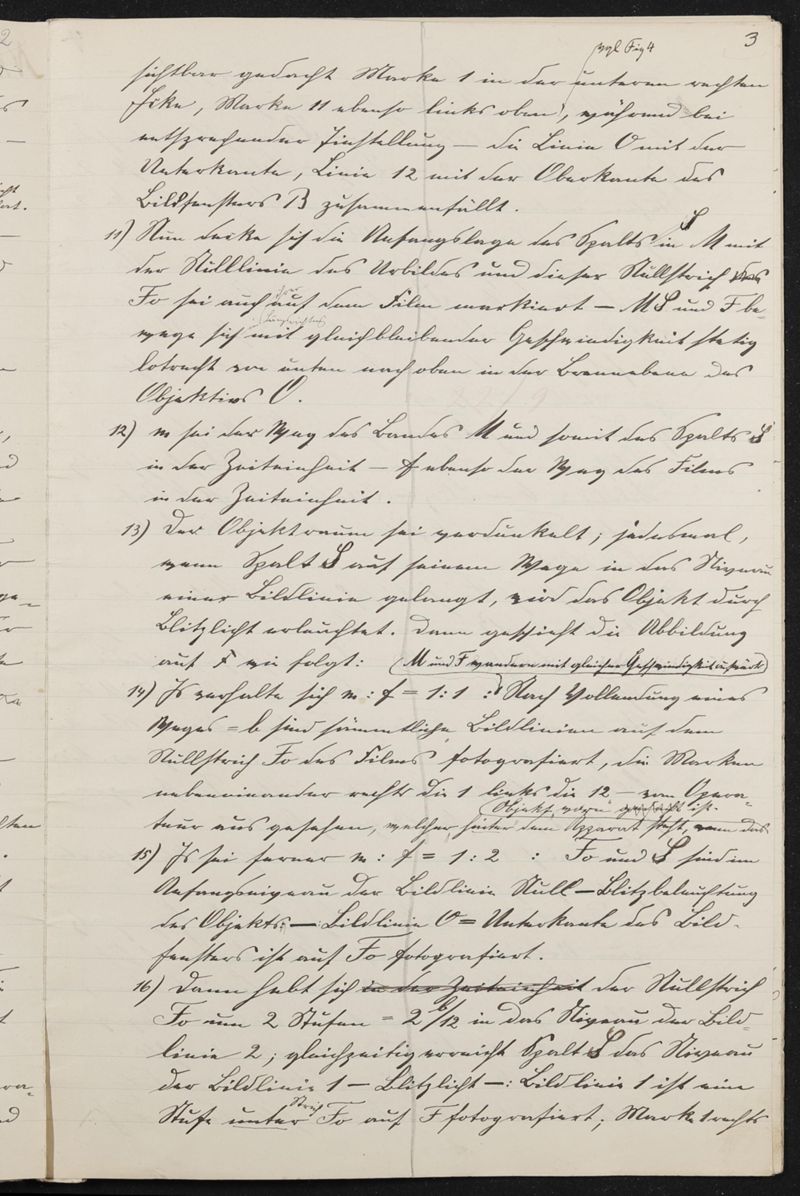 3
vgl Fig 4
sichtbar gedacht Marke 1 in der unteren rechten
Ecke, Marke 11 ebenso links oben, während bei
entsprechender Einstellung — die Linie 0 mit der
Unterkante, Linie 12 mit der Oberkante des
Bildfensters B zusammenfällt.
11) Nun decke sich die Anfangslage des Spalts S in M mit
der Nulllinie des Urbildes und dieser Nullstrich
Fo sei auch auf dem Film markiert — M S und F be-
wege sich mit gleichbleibender Geschwindigkeit stetig
lotrecht von unten nach oben in der Brennebene des
Objektivs O.
12) m sei der Weg des Bandes M und somit des Spalts S
in der Zeiteinheit — f ebenso der Weg des Films
in der Zeiteinheit.
13) Der Objektraum sei verdunkelt; jedesmal,
wenn Spalt S auf seinem Wege in das Niveau
einer Bildlinie gelangt, wird das Objekt durch
Blitzlicht erleuchtet. Dann geschieht die Abbildung
auf F wie folgt: (M und F wandern mit gleicher Geschwindigkeit aufwärts)
14) Es verhalte sich m : f = 1 : 1 : Nach Vollendung eines
Weges = b sind sämmtliche Bildlinien auf dem
Nullstrich Fo des Films fotografiert, die Marken
nebeneinander rechts die 1 links die 12 — vom Opera-
teur aus gesehen, welcher hinter dem Apparat steht, wenn das
Objekt vorn ist.
15) Es sei ferner m : f = 1 : 2 : Fo und S sind im
Anfangsniveau der Bildlinie Null — Blitzbeleuchtung
des Objekts: — Bildlinie 0 = Unterkante des Bild-
fensters ist auf Fo fotografiert.
16) Dann hebt sich in der Zeiteinheit der Nullstrich
Fo um 2 Stufen = 2 b/12 in das Niveau der Bild-
linie 2; gleichzeitig erreicht Spalt S das Niveau
der Bildlinie 1 — Blitzlicht —: Bildlinie 1 ist eine
Stufe unter Strich Fo auf F fotografiert; Marke 1 rechts